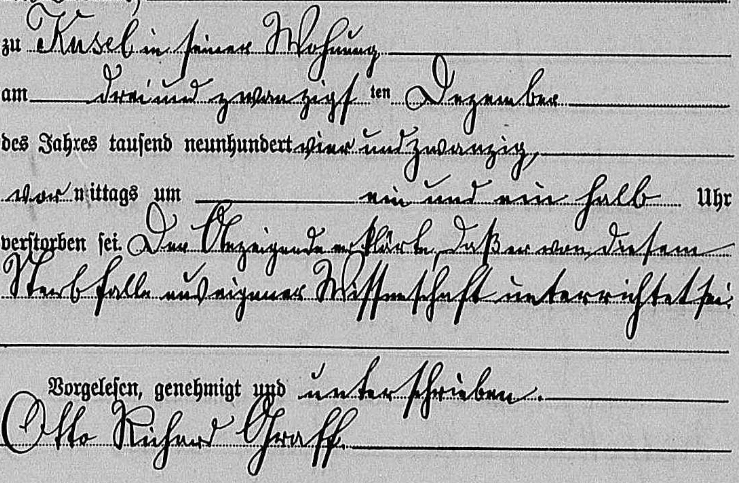 zu Kusel in seiner Wohnung
am dreiundzwanzigsten Dezember
des Jahres tausend neunhundert vierundzwanzig,
vormittags um ein und ein halb Uhr
verstorben sei. Der Anzeigende erklärte, daß er von diesem
Sterbfalle aus eigener Wissenschaft unterrichtet sei.
Vorgelesen, genehmigt und unterschrieben.
Otto Richard Graff